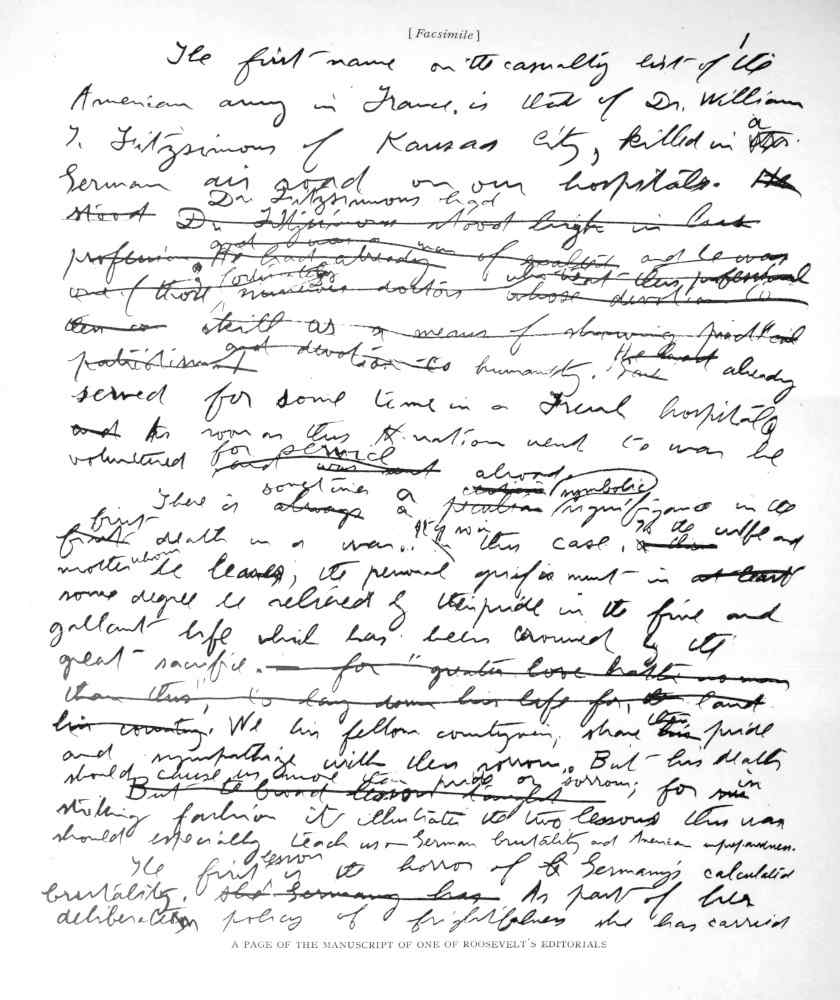 [Facsimile]
1
The first name on the casualty list of the
American army in France, is that of Dr. William
T. Fitzsimons of Kansas City, killed in a
German air raid on our hospitals. He
Dr Fitzsimmons had
stood Dr Fitzsimmons stood high in his
profession. He had already and he was
one of those doctors whose devotion to
skill as a means of showing practical
patriotism and devotion to humanity. He had already
served for some time in a French hospital
and As soon as this nation went to war he
volunteered for service abroad
There is sometimes always a peculiar symbolic significance in the
first
first death in a war. in this case. To the wife and
mother whom he leaves, the personal grief must in at least
some degree be relieved by their pride in the fine and
gallant life which has been crowned by the
great sacrifice. – for "greater love hath no man
than this", to lay down his life for, land
his country. We his fellow countrymen, share their his pride
and sympathize with their sorrow. But his death
should cause us more than pride or sorrow; for in
But the broad lesson taught
striking fashion it illustrates the two lessons this war
should especially teach us – German brutality and American unpreparedness.
The first lesson is the horror of Germany's calculated
brutality. the Germany has As part of her
deliberate policy of frightfulness she has carried
A PAGE OF THE MANUSCRIPT OF ONE OF ROOSEVELT'S EDITORIALS